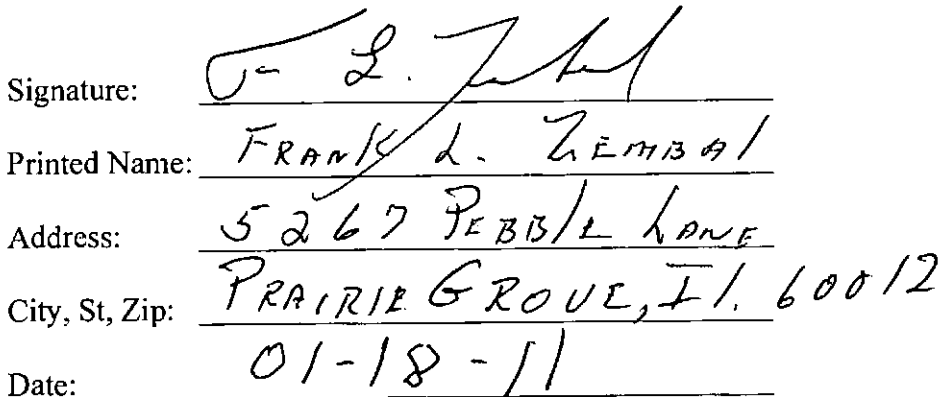 Signature: F L. Zembal
Printed Name: FRANK L. ZEMBAl
Address: 5267 PEBBlE LANE
City, St, Zip: PRAIRIE GROVE, Il. 60012
Date: 01-18-11